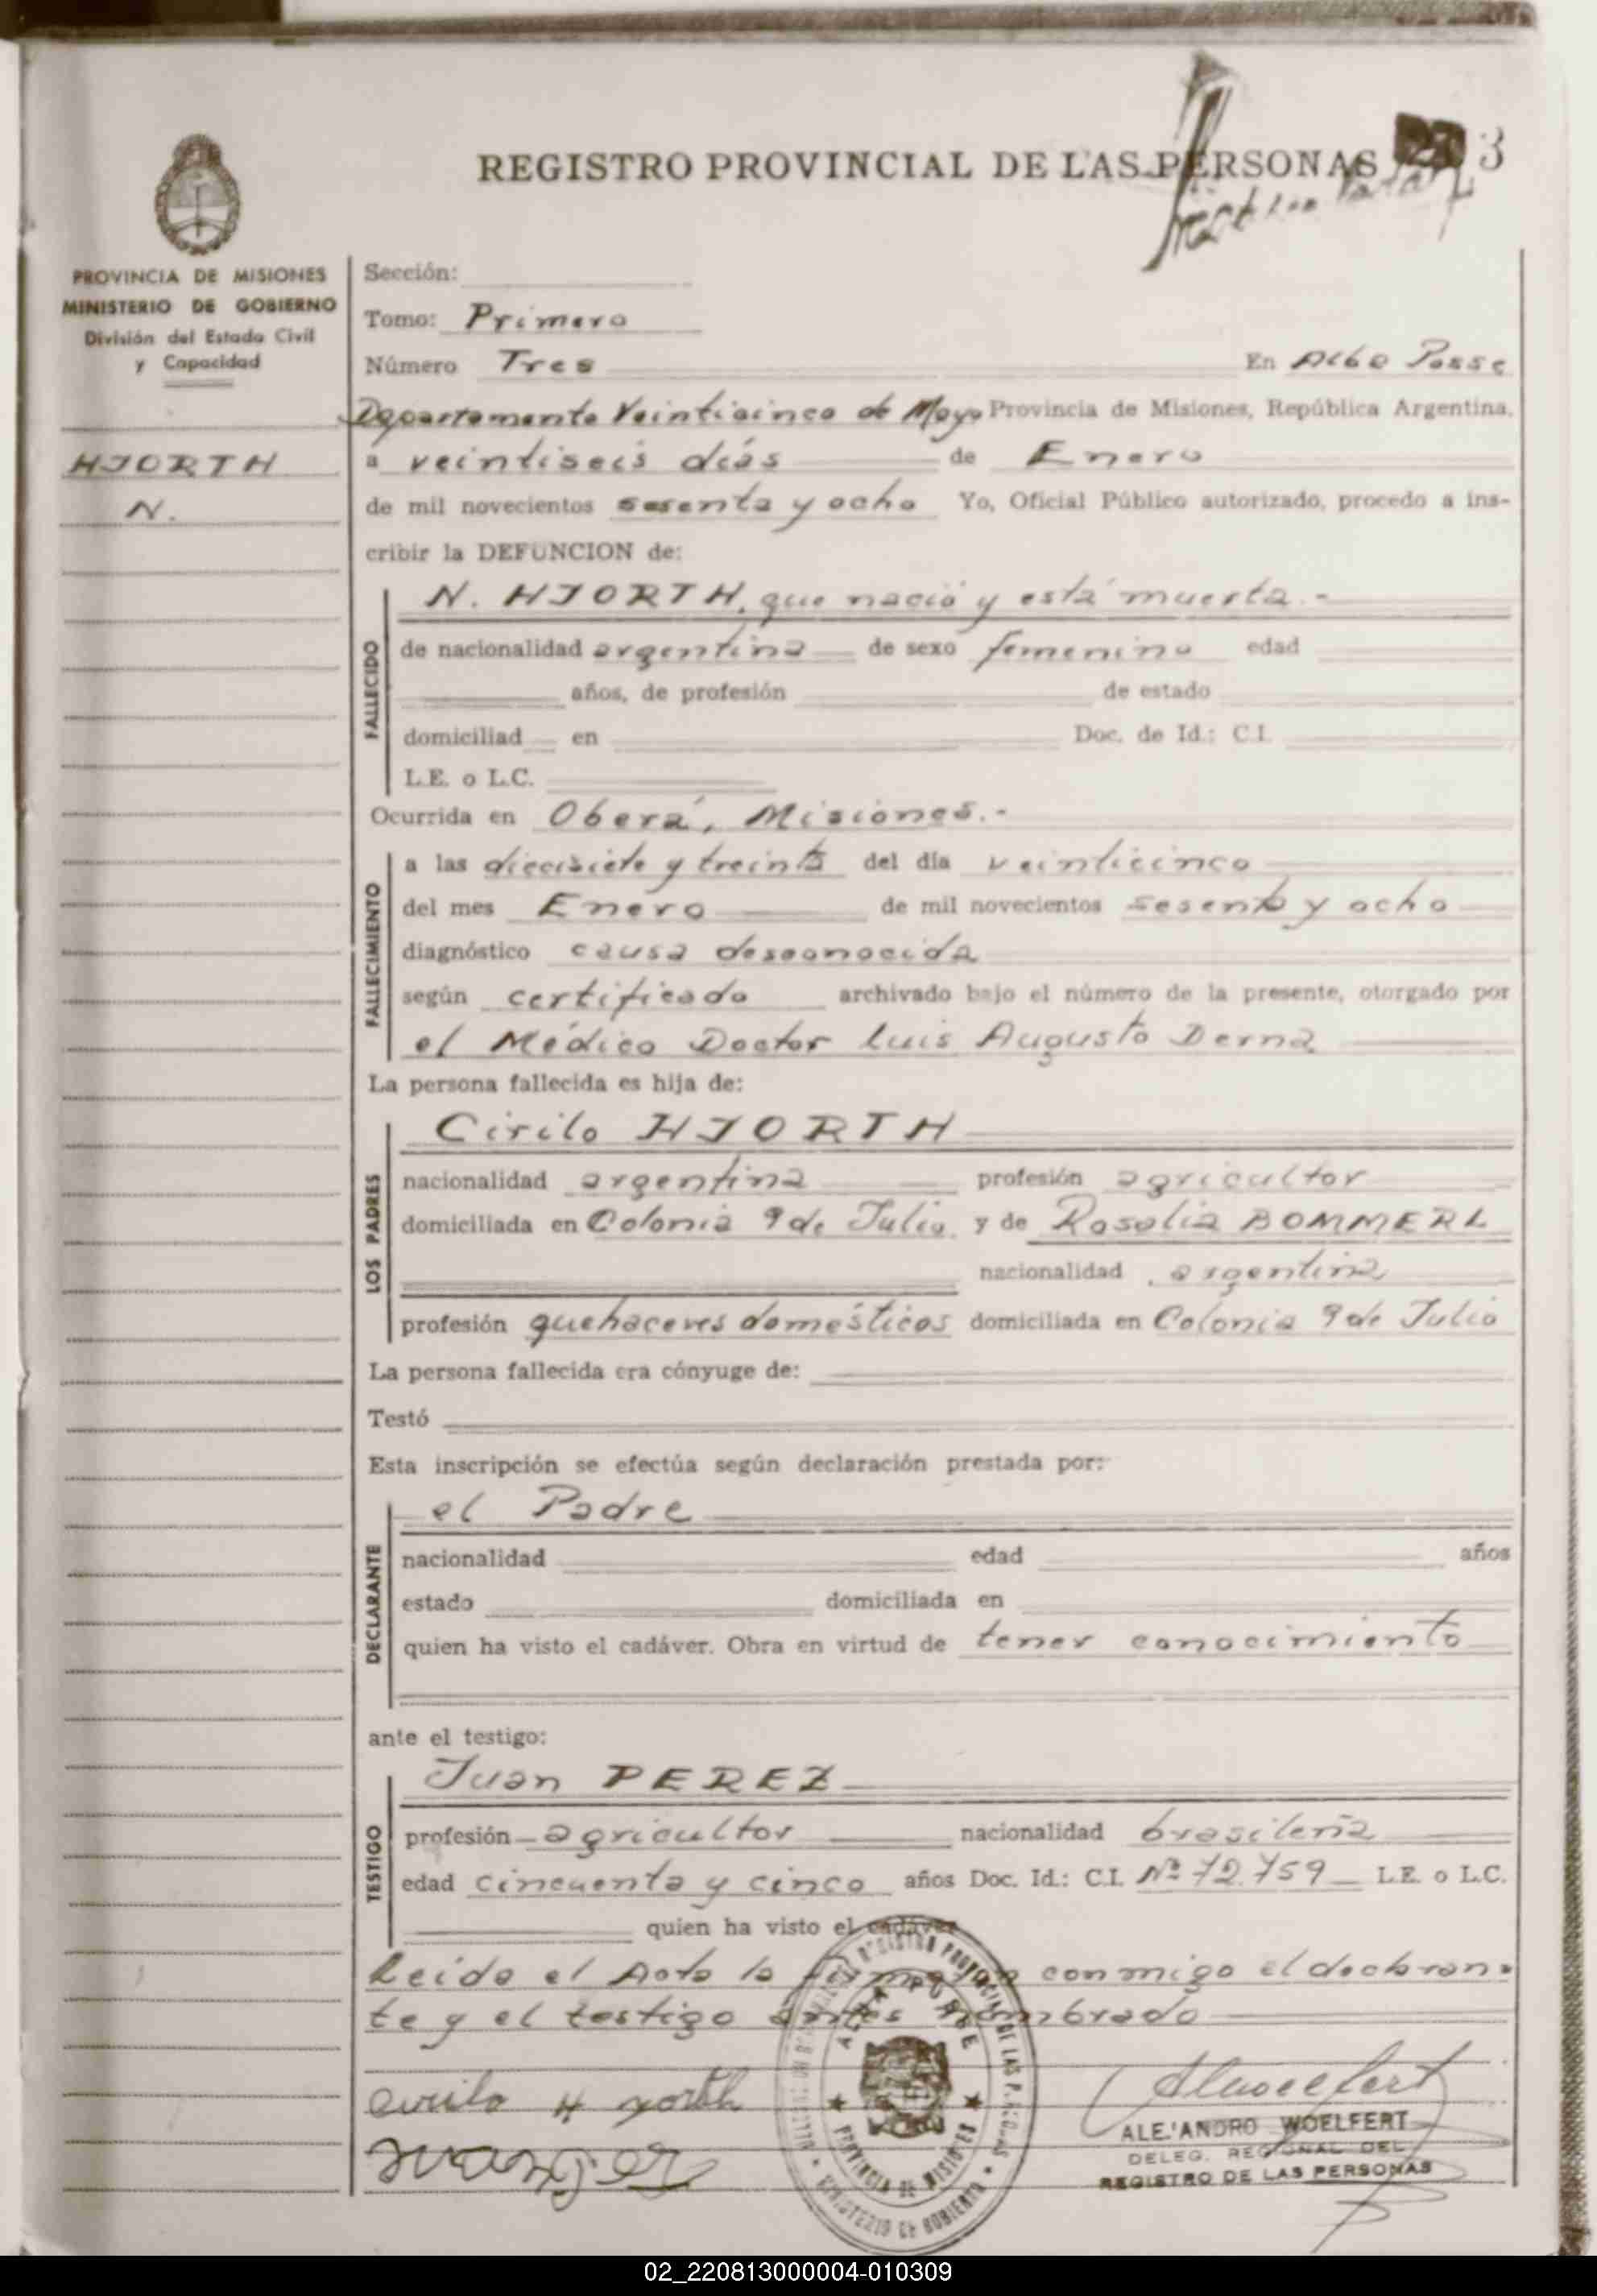 REGISTRO PROVINCIAL DE LAS PERSONAS 3
PROVINCIA DE MISIONES
MINISTERIO DE GOBIERNO
División del Estado Civil
y Capacidad
HJORTH
N.
Sección:
Tomo: Primero
Número Tres En Alba Posse
Departamento Veinticinco de Mayo Provincia de Misiones, República Argentina,
a veintiseis días de Enero
de mil novecientos sesenta y ocho Yo, Oficial Público autorizado, procedo a ins-
cribir la DEFUNCION de:
FALLECIDO
N. HJORTH, que nació y está muerta.-
de nacionalidad argentina de sexo femenino edad
años, de profesión de estado
domiciliad en Doc. de Id.: C.I.
L.E. o L.C.
Ocurrida en Oberá, Misiones.-
FALLECIMIENTO
a las diecisiete y treinta del día veinticinco
del mes Enero de mil novecientos sesenta y ocho
diagnóstico causa desconocida
según certificado archivado bajo el número de la presente, otorgado por
el Médico Doctor Luis Augusto Derna
La persona fallecida es hija de:
LOS PADRES
Cirilo HJORTH
nacionalidad argentina profesión agricultor
domiciliada en Colonia 9 de Julio, y de Rosalia BOMMERL
nacionalidad argentina
profesión quehaceres domésticos domiciliada en Colonia 9 de Julio
La persona fallecida era cónyuge de:
Testó
Esta inscripción se efectúa según declaración prestada por:
DECLARANTE
el Padre
nacionalidad edad años
estado domiciliada en
quien ha visto el cadáver. Obra en virtud de tener conocimiento
ante el testigo:
TESTIGO
Juan PEREZ
profesión agricultor nacionalidad brasileña
edad cincuenta y cinco años Doc. Id.: C.I. Nº 72.759 L.E. o L.C.
quien ha visto el cadáver
Leida el Acta la firmaron conmigo el declaran-
te y el testigo antes nombrado
cirilo H yorth
ALEJANDRO WOELFERT
DELEG. REGIONAL DEL
REGISTRO DE LAS PERSONAS
ALBA POSSE
PROVINCIA DE MISIONES
MINISTERIO DE GOBIERNO
02_220813000004-010309